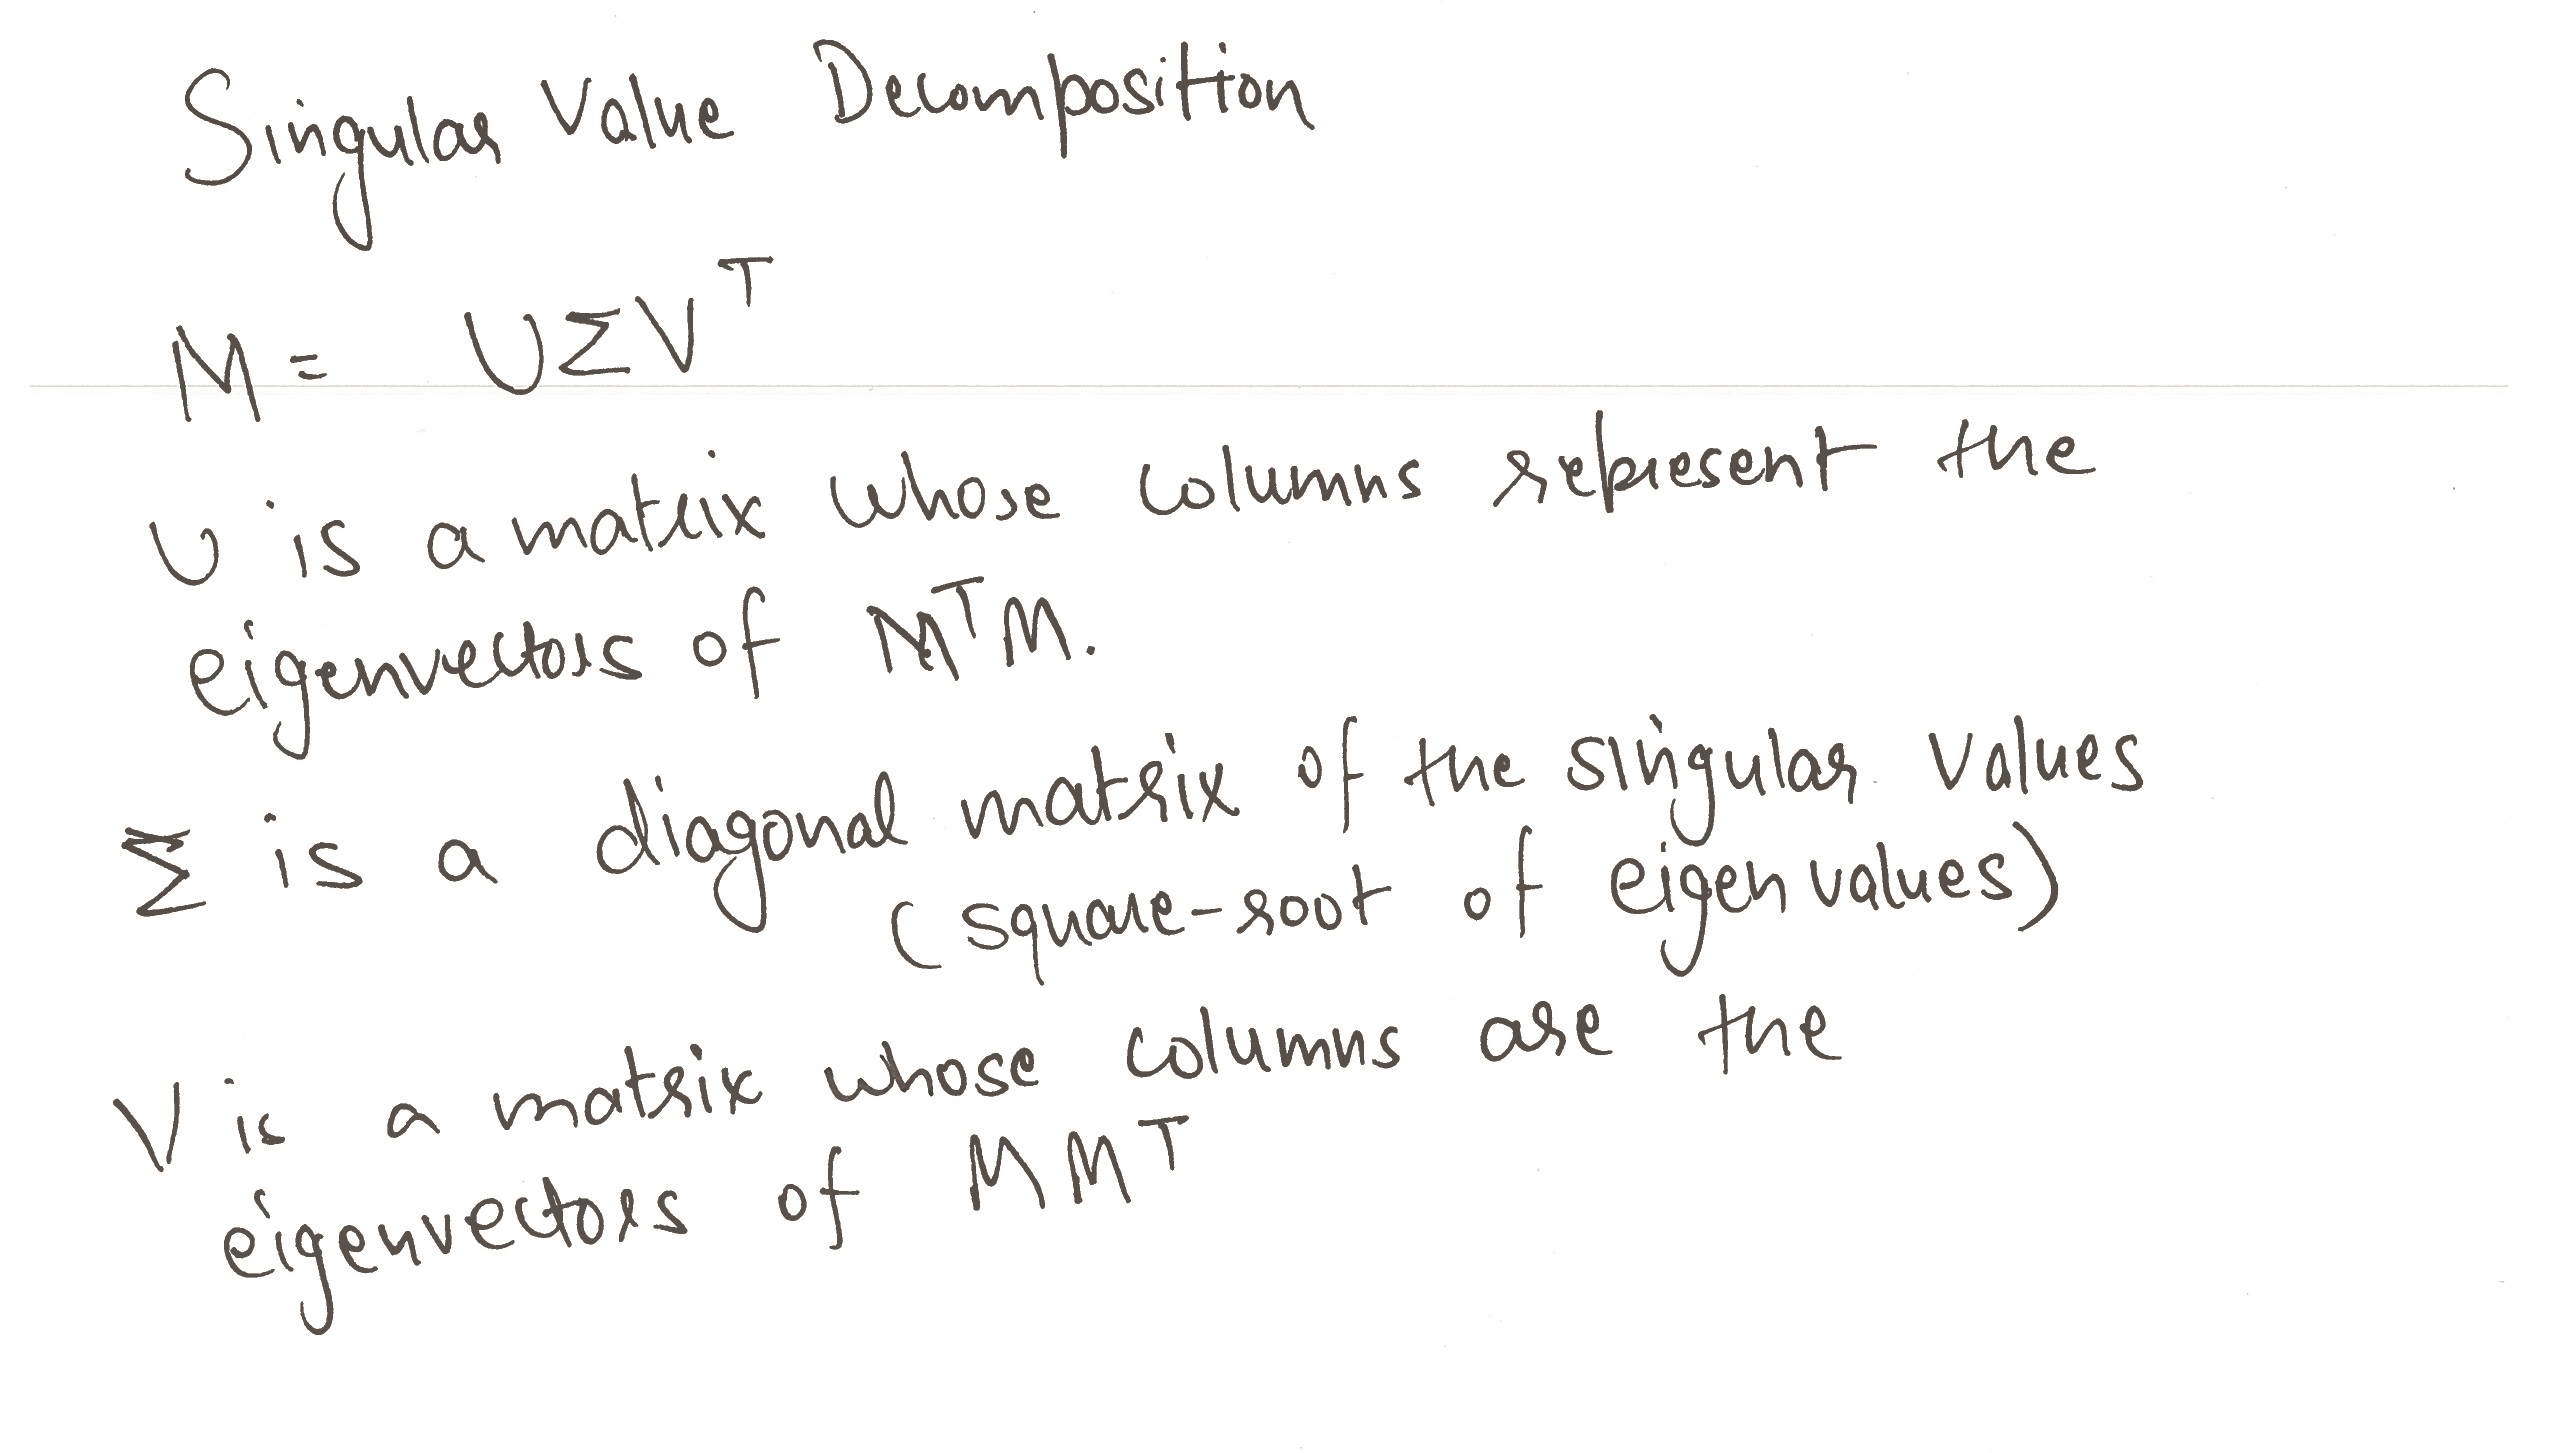 Singular Value Decomposition
M = UΣVᵀ
U is a matrix whose columns represent the
eigenvectors of MᵀM.
Σ is a diagonal matrix of the singular values
(square-root of eigen values)
V is a matrix whose columns are the
eigenvectors of MMᵀ